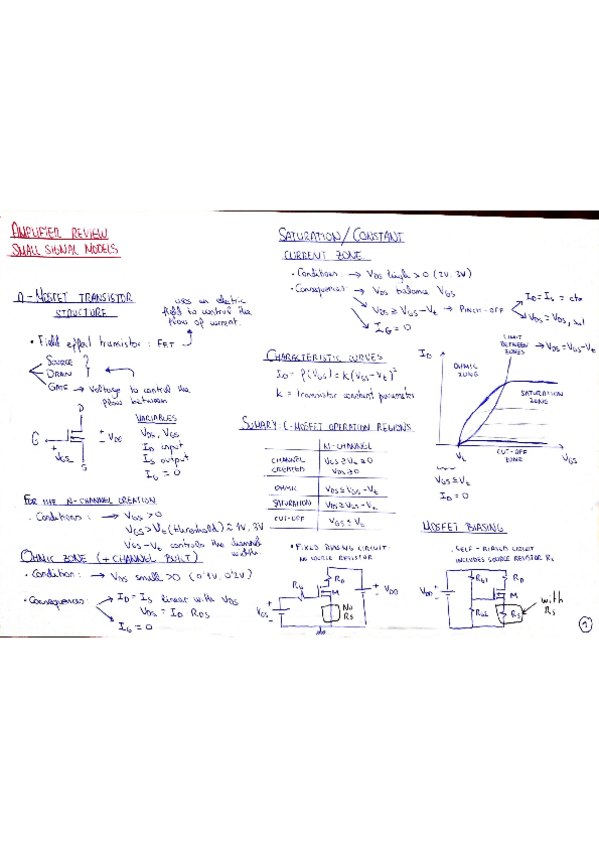 AMPLIFIER REVIEW
SMALL SIGNAL MODELS
n-MOSFET TRANSISTOR
STRUCTURE
uses an electric
field to control the
flow of current.
• Field effect transistor: FET
SOURCE
DRAIN
GATE → Voltage to control the
flow between
D
G
S
VGS
VDS
VARIABLES
VDS, VGS
ID input
IS output
IG = 0
FOR THE N-CHANNEL CREATION
. Conditions: → VGS > 0
VGS > Vt (threshold) ≈ 1V, 3V
VGS - Vt controls the channel
width
OHMIC ZONE (+ CHANNEL BUILT)
• Condition: → VDS small > 0 (0'1V, 0'2V)
• Consequences: ID = IS linear with VDS
VDS = ID RDS
IG = 0
SATURATION/CONSTANT
CURRENT ZONE
• Conditions: → VDS high > 0 (2V, 3V)
• Consequences: → VDS balance VGS
VDS ≥ VGS - Vt → PINCH-OFF
ID = IS = cte
VDS = VDS, sat
IG = 0
CHARACTERISTIC CURVES
ID = f(VGS) = k(VGS - Vt)²
k = transistor constant parameter
ID
OHMIC
ZONE
LIMIT
BETWEEN
ZONES
→ VDS = VGS - Vt
SATURATION
ZONE
CUT-OFF
ZONE
Vt
VGS
VGS ≤ Vt
ID = 0
SUMARY: E-MOSFET OPERATION REGIONS
N-CHANNEL
CHANNEL
CREATION
VGS ≥ Vt ≥ 0
VDS ≥ 0
OHMIC
VDS ≤ VGS - Vt
SATURATION
VDS ≥ VGS - Vt
CUT-OFF
VGS ≤ Vt
• FIXED BIASING CIRCUIT
NO SOURCE RESISTOR
RG
RD
M
VDD
VGG
No
RS
MOSFET BIASING
. SELF-BIASED CIRCUIT
INCLUDES SOURCE RESISTOR RS
VDD
RG1
RD
M
RG2
RS
with
RS
1